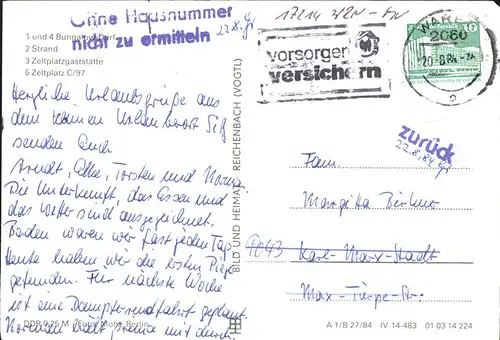 Ohne Hausnummer
nicht zu ermitteln 22.8.
1 und 4 Bungalow-Dorf
2 Strand
3 Zeltplatzgaststätte
5 Zeltplatz C/97
Herzliche Urlaubsgrüße aus
dem kleinen Urlauberort
senden Euch
Arndt, Elke, Torsten und
Die Unterkunft, das Essen und
das Wetter sind ausgezeichnet.
Baden waren wir fast jeden Tag
Heute haben wir die ersten Pilze
gefunden. Für nächste Woche
ist eine Dampferrundfahrt geplant.
hält prima mit durch.
DDR 0,25 M Berlin
BILD UND HEIMAT REICHENBACH (VOGTL)
WAREN
2060
20.-8.84
vorsorgen
versichern
10
zurück
22.8.84
Fam.
Margitta
9043 Karl-Marx-Stadt
Max-Türpe-Str.
A 1/B 27/84 IV-14-483 01 03 14 224